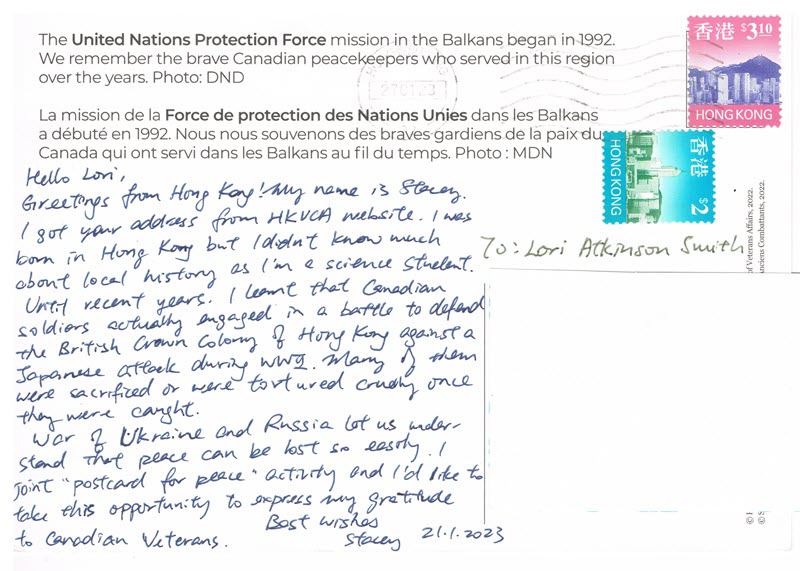 The United Nations Protection Force mission in the Balkans began in 1992.
We remember the brave Canadian peacekeepers who served in this region
over the years. Photo: DND
La mission de la Force de protection des Nations Unies dans les Balkans
a débuté en 1992. Nous nous souvenons des braves gardiens de la paix du
Canada qui ont servi dans les Balkans au fil du temps. Photo : MDN
香港 $3.10
HONG KONG
香港 $2
HONG KONG
270123
Hello Lori,
Greetings from Hong Kong! My name is Stacey.
I got your address from HKVCA website. I was
born in Hong Kong but I didn't know much
about local history as I'm a science student.
Until recent years. I learnt that Canadian
soldiers actually engaged in a battle to defend
the British Crown Colony of Hong Kong against a
Japanese attack during WWII. Many of them
were sacrificed or were tortured cruelly once
they were caught.
War of Ukraine and Russia let us under-
stand that peace can be lost so easily. I
joint "postcard for peace" activity and I'd like to
take this opportunity to express my gratitude
to Canadian Veterans.
Best wishes
Stacey 21.1.2023
To: Lori Atkinson Smith
of Veterans Affairs, 2022.
Anciens Combattants, 2022.